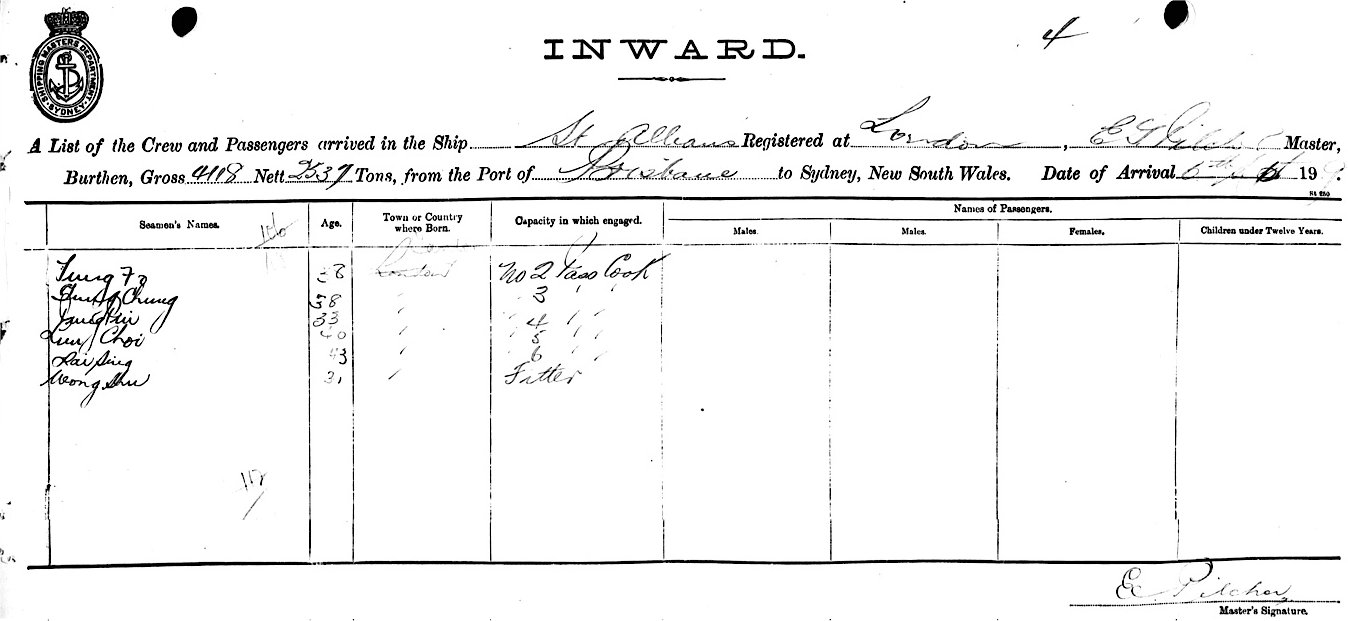 SHIPPING MASTERS DEPARTMENT
SYDNEY
INWARD.
4
A List of the Crew and Passengers arrived in the Ship St Albans Registered at London, E Pilcher Master,
Burthen, Gross 4118 Nett 2537 Tons, from the Port of Brisbane to Sydney, New South Wales. Date of Arrival 6th 19
Seamen's Names. Age. Town or Country where Born. Capacity in which engaged. Names of Passengers.
Males. Males. Females. Children under Twelve Years.
38 No 2 Pass Cook
Chung 38 " 3 " "
33 " 4 " "
Choi 40 " 5 " "
Lai Sing 43 " 6 " "
Wong 31 " Fitter
112
E Pilcher
Master's Signature.